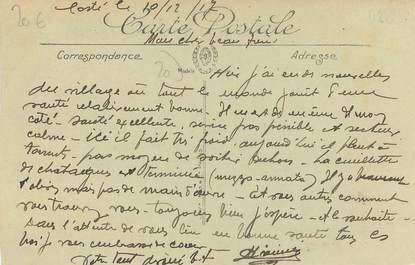 Corté le 19/12/17
Carte Postale
Mon cher beau frère
Correspondance
Adresse
20
J'ai eu des nouvelles
du village où tout le monde jouit d'une
santé relativement bonne. Il en est de même de mon
côté - Santé excellente, service pas pénible et secteur
calme - Ici il fait très froid, aujourd'hui il pleut à
torrents - pas moyen de sortir dehors - La cueillette
de chataignes est terminée (mezza-annata) Il y a beaucoup
d'olives mais pas de main d'œuvre - Et vous autres comment
vous trouvez vous - toujours bien j'espère - et le souhaite -
Dans l'attente de vous lire en bonne santé tous les
trois je vous embrasse de cœur
Votre tout dévoué b.f.